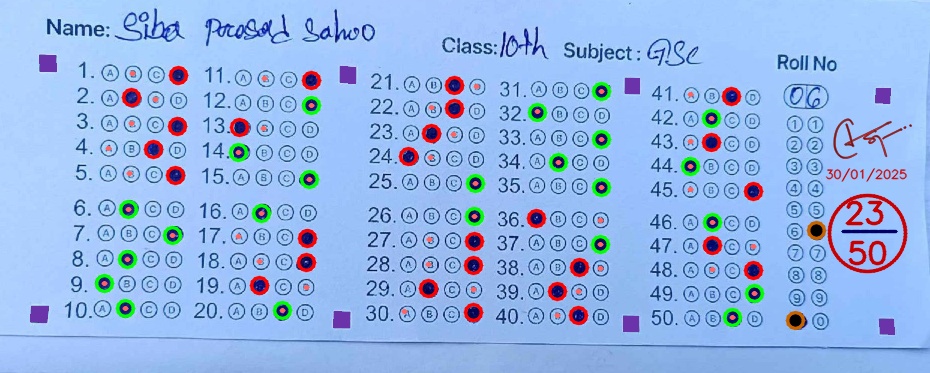 Name: Siba Prasad Sahoo
Class: 10th Subject: GSc
Roll No
06
1. A B C D
2. A B C D
3. A B C D
4. A B C D
5. A B C D
6. A B C D
7. A B C D
8. A B C D
9. A B C D
10. A B C D
11. A B C D
12. A B C D
13. A B C D
14. A B C D
15. A B C D
16. A B C D
17. A B C D
18. A B C D
19. A B C D
20. A B C D
21. A B C D
22. A B C D
23. A B C D
24. A B C D
25. A B C D
26. A B C D
27. A B C D
28. A B C D
29. A B C D
30. A B C D
31. A B C D
32. A B C D
33. A B C D
34. A B C D
35. A B C D
36. A B C D
37. A B C D
38. A B C D
39. A B C D
40. A B C D
41. A B C D
42. A B C D
43. A B C D
44. A B C D
45. A B C D
46. A B C D
47. A B C D
48. A B C D
49. A B C D
50. A B C D
1 1
2 2
3 3
4 4
5 5
6
7 7
8 8
9 9
0
30/01/2025
23
50